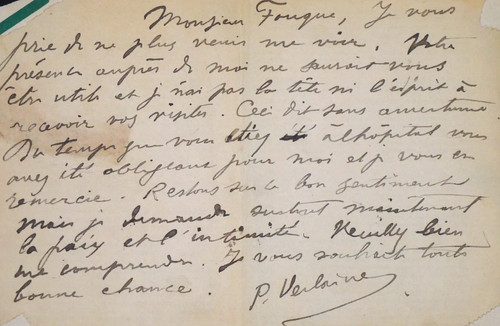 Monsieur Fouque, Je vous
prie de ne plus venir me voir. Votre
présence auprès de moi ne saurait vous
être utile et je n'ai pas la tête ni l'esprit à
recevoir vos visites. Ceci dit sans amertume.
Du temps que vous étiez à l'hôpital vous
avez été obligeant pour moi et je vous en
remercie. Restons sur ce bon sentiment
mais je demande surtout maintenant
la paix et l'intimité. Veuillez bien
me comprendre. Je vous souhaite toute
bonne chance.
P. Verlaine